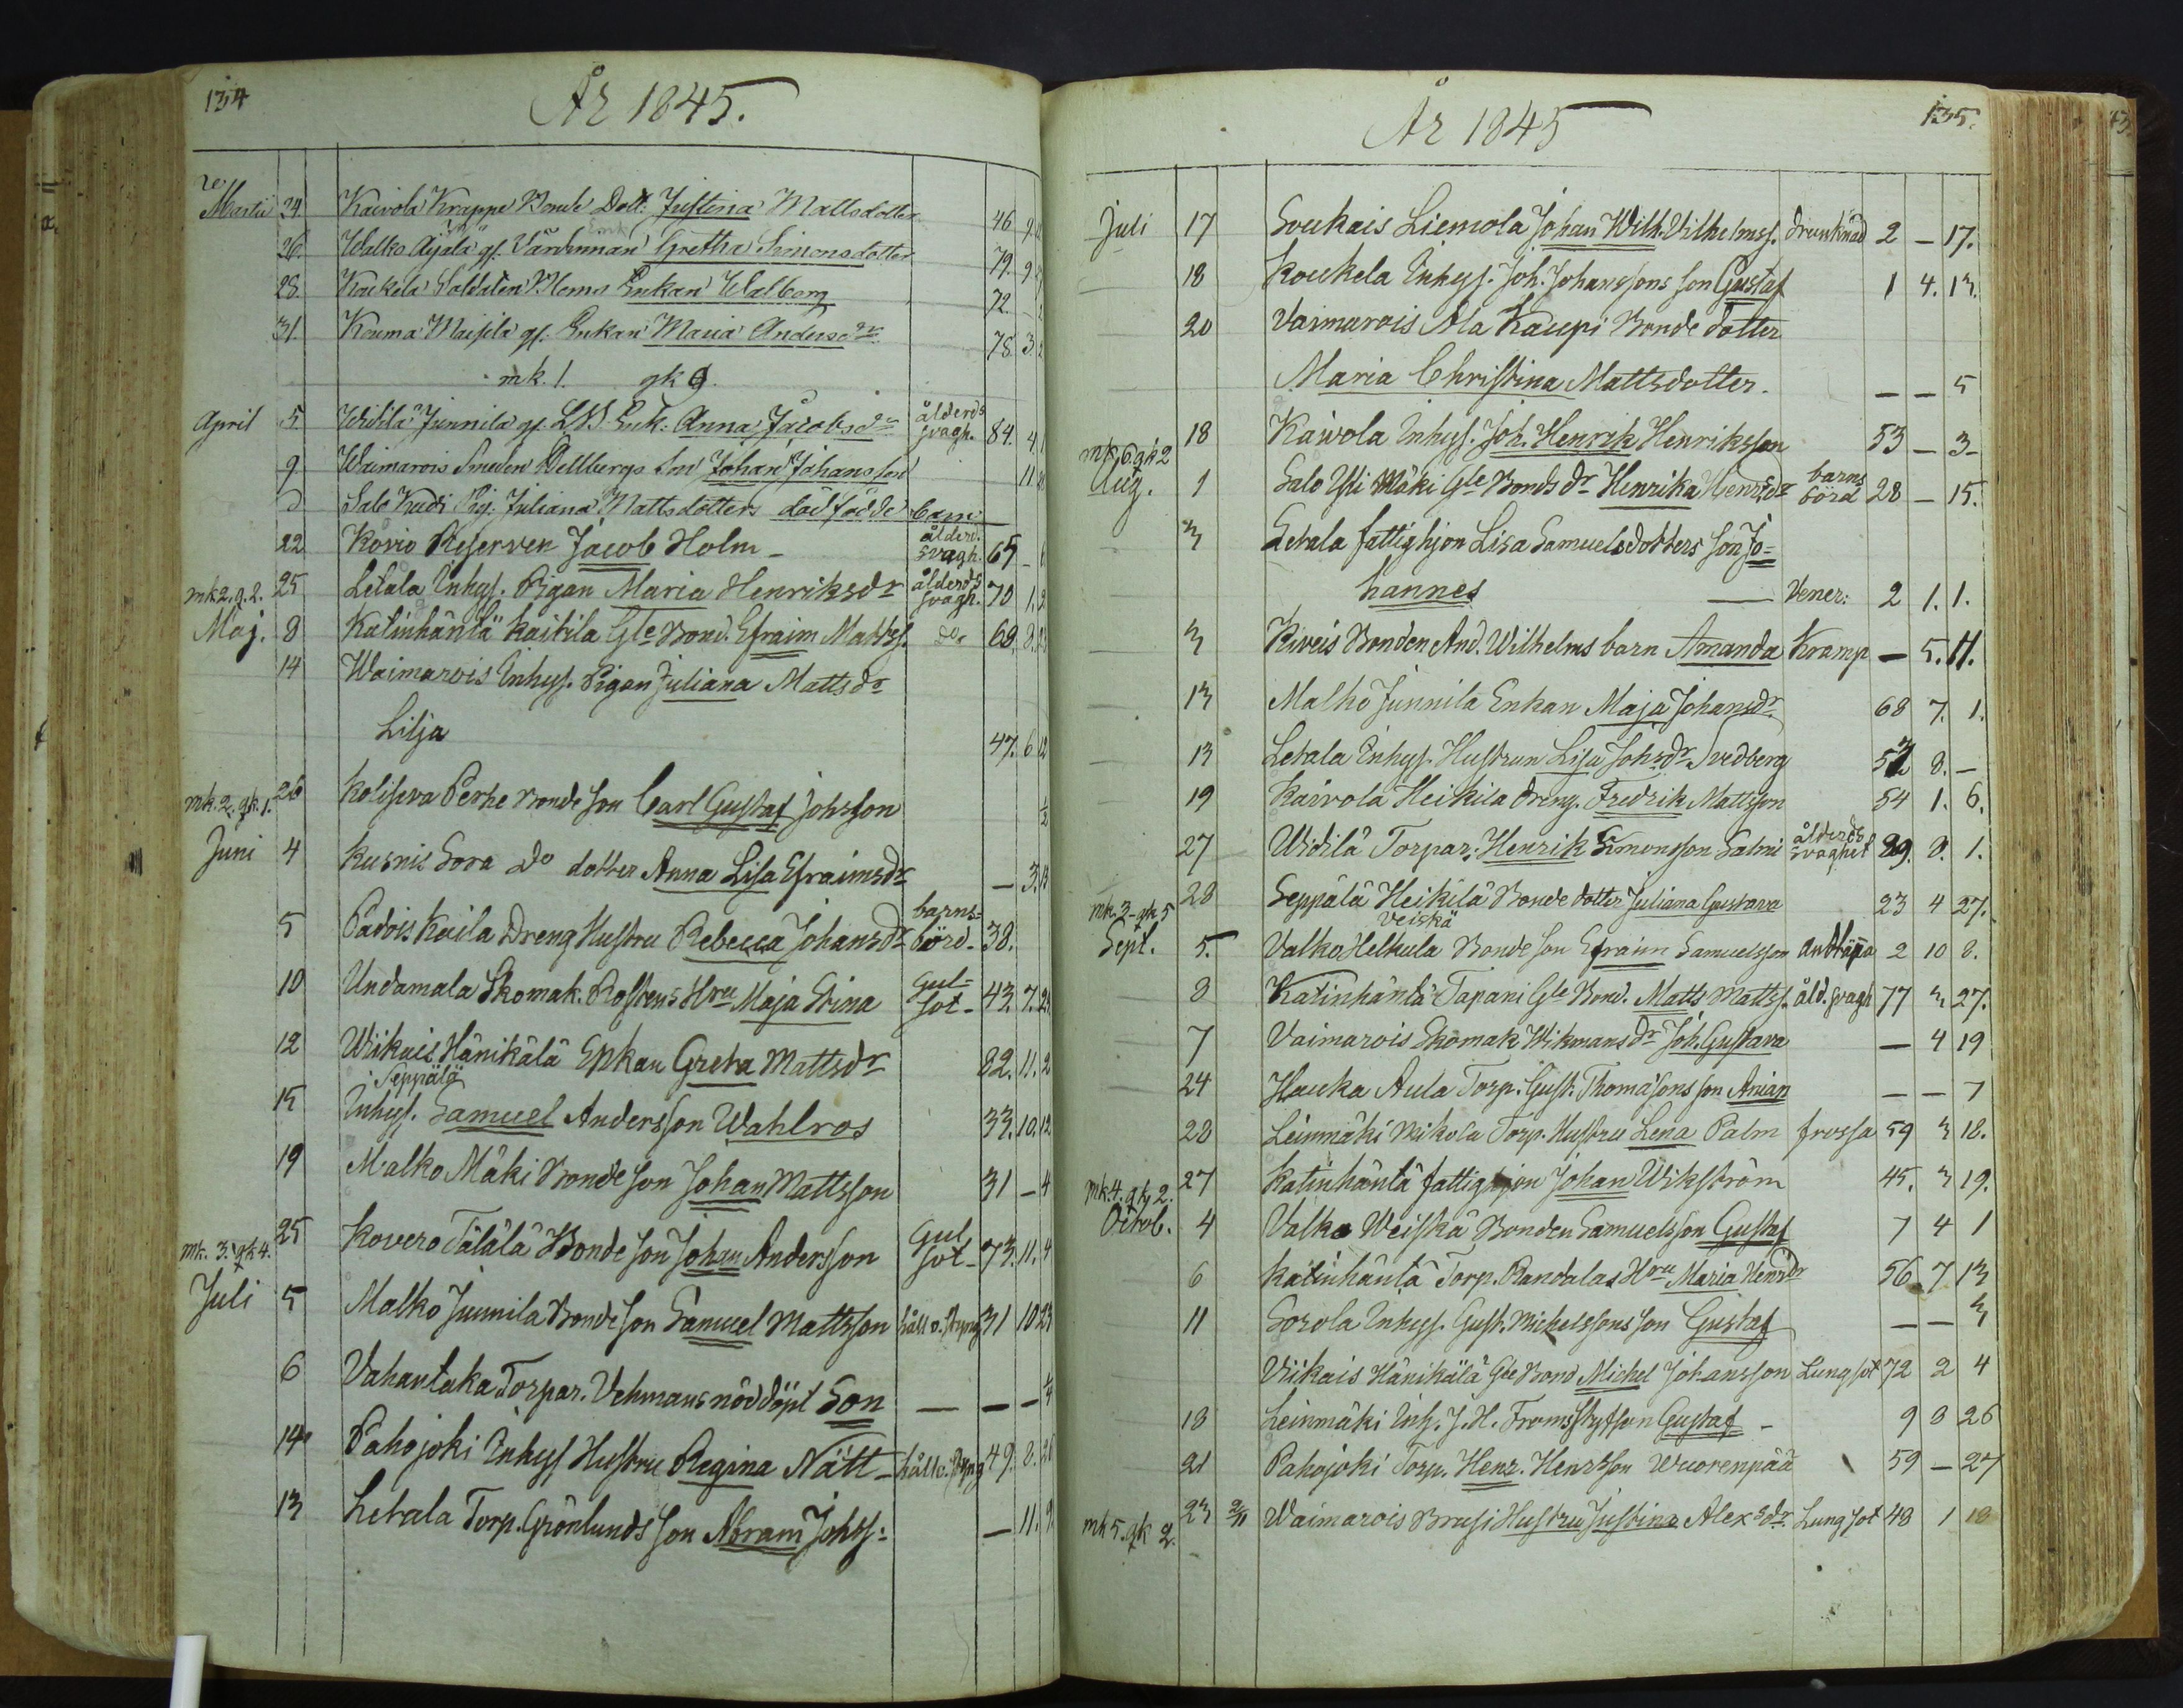 134
År 1845.
Martii 24 Kaivola Krappe Bonde Dott. Justina Mattsdotter 46 9
26. Walko Äijälä gl. Värdinnan Gretha Simonsdotter 79. 9
28. Koukela Soldaten Enkan Walborg 72.
31. Kouma Maisila gl. Enkan Maria Andersdr 78 3
mk. 1. qk 9.
April 5 Widilä Junnila gl. Enk. Anna Jacobsdr ålderds svagh. 84. 4
9 Waimarois Smeden Dellbergs son Johan Johansson 11.
Salo Kudi Pig. Juliana Mattsdotters dödfödde barn
22 Kovio Reserven Jacob Holm - ålderd. svagh. 65 -
mk 2. q. 2. 25 Letala Inhys. Pigan Maria Henriksdr ålderds svagh. 70 1.
Maj. 8 Katinhäntä Kaitila Gle Bond. Efraim Mattss. do 68. 8.
14 Waimarois Inhys. Pigan Juliana Mattsdr
Lilja 47. 6 12
mk. 2. qk. 1. 26 Koliseva Perhe Bonde son Carl Gustaf Johsson ½
Juni 4 Kusnis Sora do dotter Anna Lisa Efraimsdr - 3. 13
5 Padois Kaila Dreng Hustru Rebecca Johansdr barns= börd- 38.
10 Undamala Skomak. Rostens Hru Maja Stina Gul= sot- 43. 7. 23
12 Wiikais Hänikälä Enkan Greta Mattsdr 82. 11. 2
Seppälä
15 Inhys. Samuel Andersson Wahlros 33. 10. 12
19 Malko Mäki Bonde son Johan Mattsson 31 - 4
mk. 3. qk 4. 25 Kovero Tälälä Bonde son Johan Andersson Gul sot- 73. 11. 4
Juli 5 Malko Junnila Bonde son Samuel Mattsson håll o. styng 31 10 23
6 Vahantaka Torpar. Vehmans nöddöpt Son — — - ¼
14 Pahojoki Inhys Hustru Regina Nätt - håll o. styng 49. 8. 26
13 Letala Torp. Grönlunds son Abram Johss: - 11. 9.
135.
År 1845
Juli 17 Soukais Liemola Johan Wilh. Vilhelmss. drunknad 2 - 17.
18 Koukela Inhys. Joh. Johanssons son Gustaf 1 4. 13.
20 Vaimarois Ala Kaupi Bonde dotter
Maria Christina Mattsdotter. - - 5
mk. 6. qk 2 18 Kaivola Inhys. Joh. Henrik Henriksson 53 - 3-
Aug. 1 Salo Yli Mäki Gle Bonds dr Henrika Henrsdr barns börd 28 - 15.
3 Letala fattighjon Lisa Samuelsdotters son Jo=
hannes — Vener: 2 1. 1.
3 Kiveis Bonden And. Wilhelms barn Amanda Kramp - 5. 11.
13 Malko Junnila Enkan Maja Johansdr 68 7. 1.
13 Letala Inhys. Hustrun Lisa Johsdr Svedberg 53 8. -
19 Kaivola Heikila dreng. Fredrik Mattsson 54 1. 6.
27 Widilä Torpar. Henrik Simonsson Salmi ålderds svaghet 89. 8. 1.
mk. 3 - qk 5 28 Seppälä Heikilä Bonde dotter Juliana Gustava 23 4 27.
Veiskä
Sept. 5. Valko Helkula Bonde son Efraim Samuelsson andtäpa 2 10 8.
8 Katinhäntä Tapani Gle Bond. Matts Mattss. åld. svagh 77 3 27.
7 Vaimarois Skomak. Wikmans dr Joh. Gustava - 4 19
24 Hauka Aula Torp. Gust. Thomasons son Anian - - 7
28 Leinmäki Mikola Torp. Hustru Lena Palm frossa 59 3 18.
mk. 4. qk 2. 27 Katinhäntä fattighjon Johan Wikström 45. 3 19.
Octob. 4 Valko Weiskä Bonden Samuelsson Gustaf 7 4 1
6 Katinhäntä Torp. Randalas Hru Maria Henrsdr 56 7 13
11 Sorola Inhys. Gust. Michelssons son Gustaf - - 3
Viikais Hänikälä Gle Bond Michel Johansson Lungsot 72 2 4
18 Leinmäki Inh. J. H. Gustaf - 9 8 26
21 Pahojoki Torp. Henr. Henrsson Wuorenpää 59 - 27
mk 5. qk 2. 23 2/11 Waimarois Brusi Hustru Justina Alexsdr. Lungsot 48 1 18